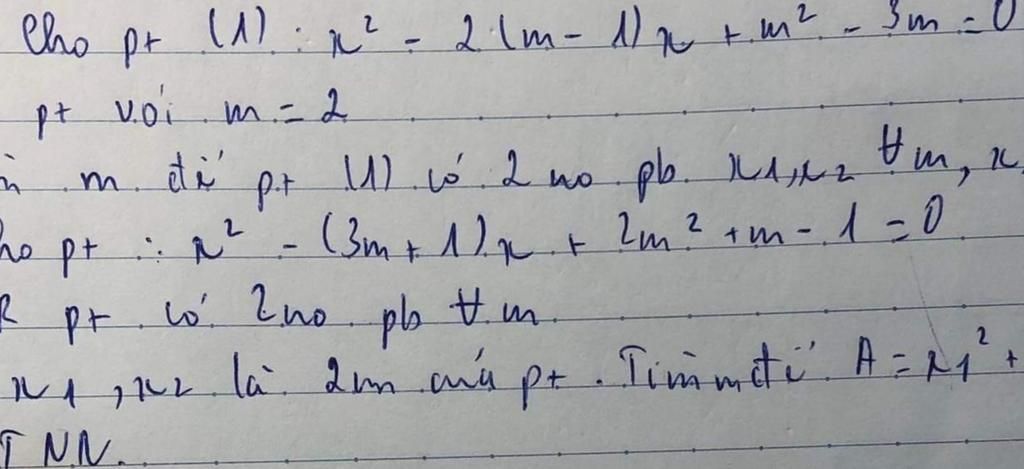 Cho pt (1) : x² - 2(m - 1)x + m² - 3m = 0
pt với m = 2
m để pt (1) có 2 no pb x1, x2 ∀m, x
ho pt : x² - (3m + 1)x + 2m² + m - 1 = 0
R pt có 2 no pb ∀m
x1, x2 là 2m của pt. Tìm m để A = x1² +
T NN.